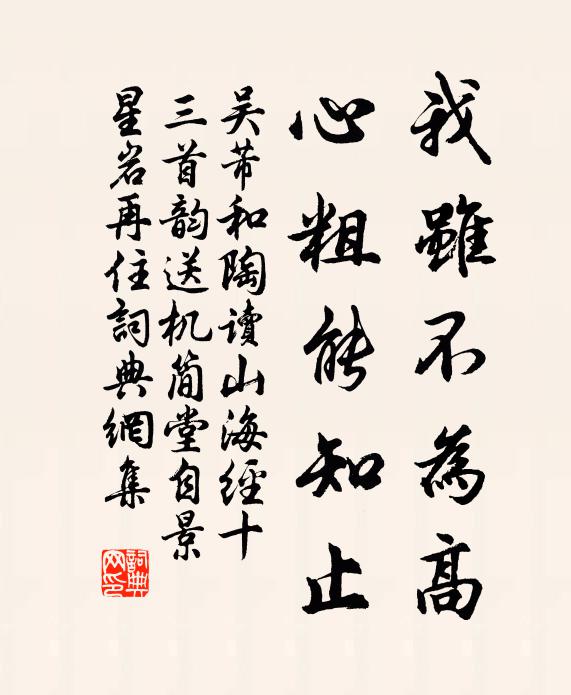 我雖不為高
心粗能知止
吴芾和陶讀山海經十
三首韵送机簡堂自景
星岩再住詞典網集
詞典网印